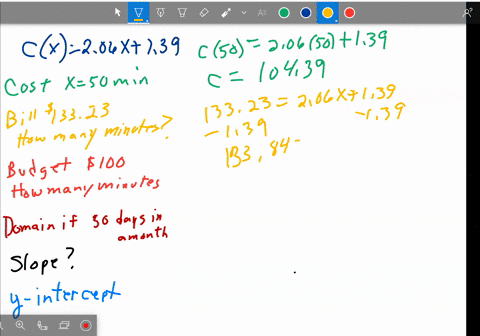 C(x)=2.06x+1.39
Cost x=50 min
Bill $133.23
How many minutes?
Budget $100
How many minutes
Domain if 30 days in
a month
Slope?
y-intercept
C(50)=2.06(50)+1.39
C=104.39
133.23=2.06x+1.39
-1.39 -1.39
133,84=